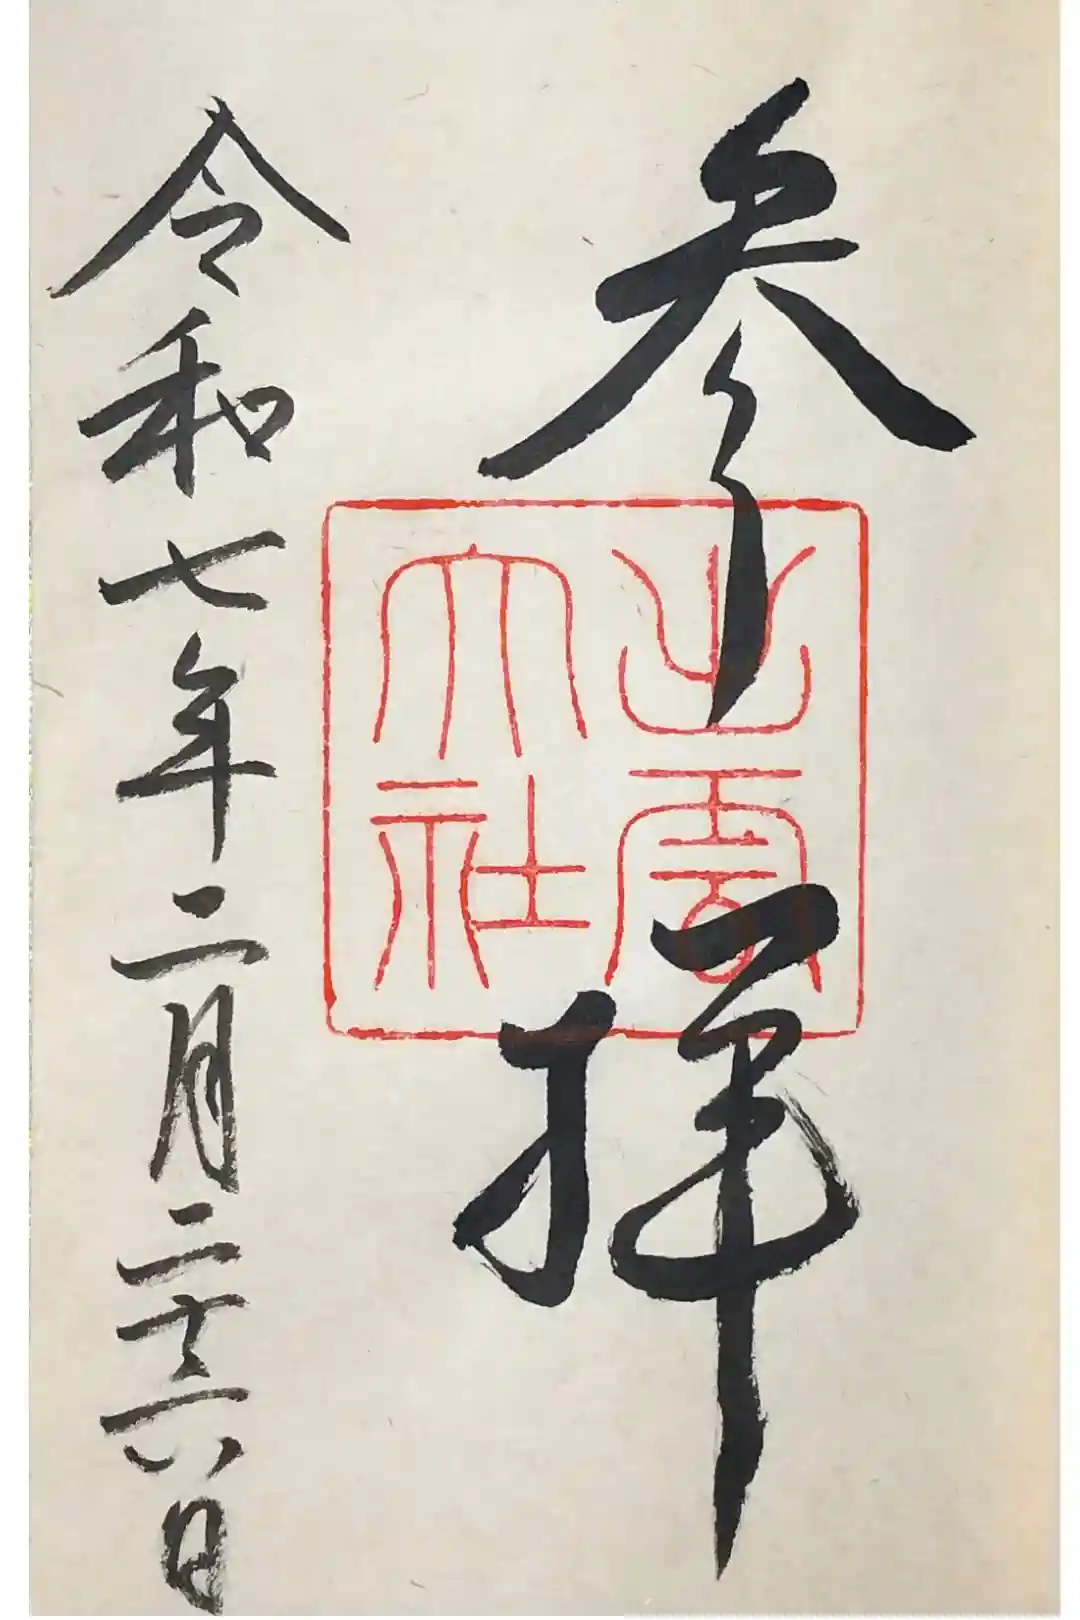 参拝
出雲大社
令和七年二月二十六日